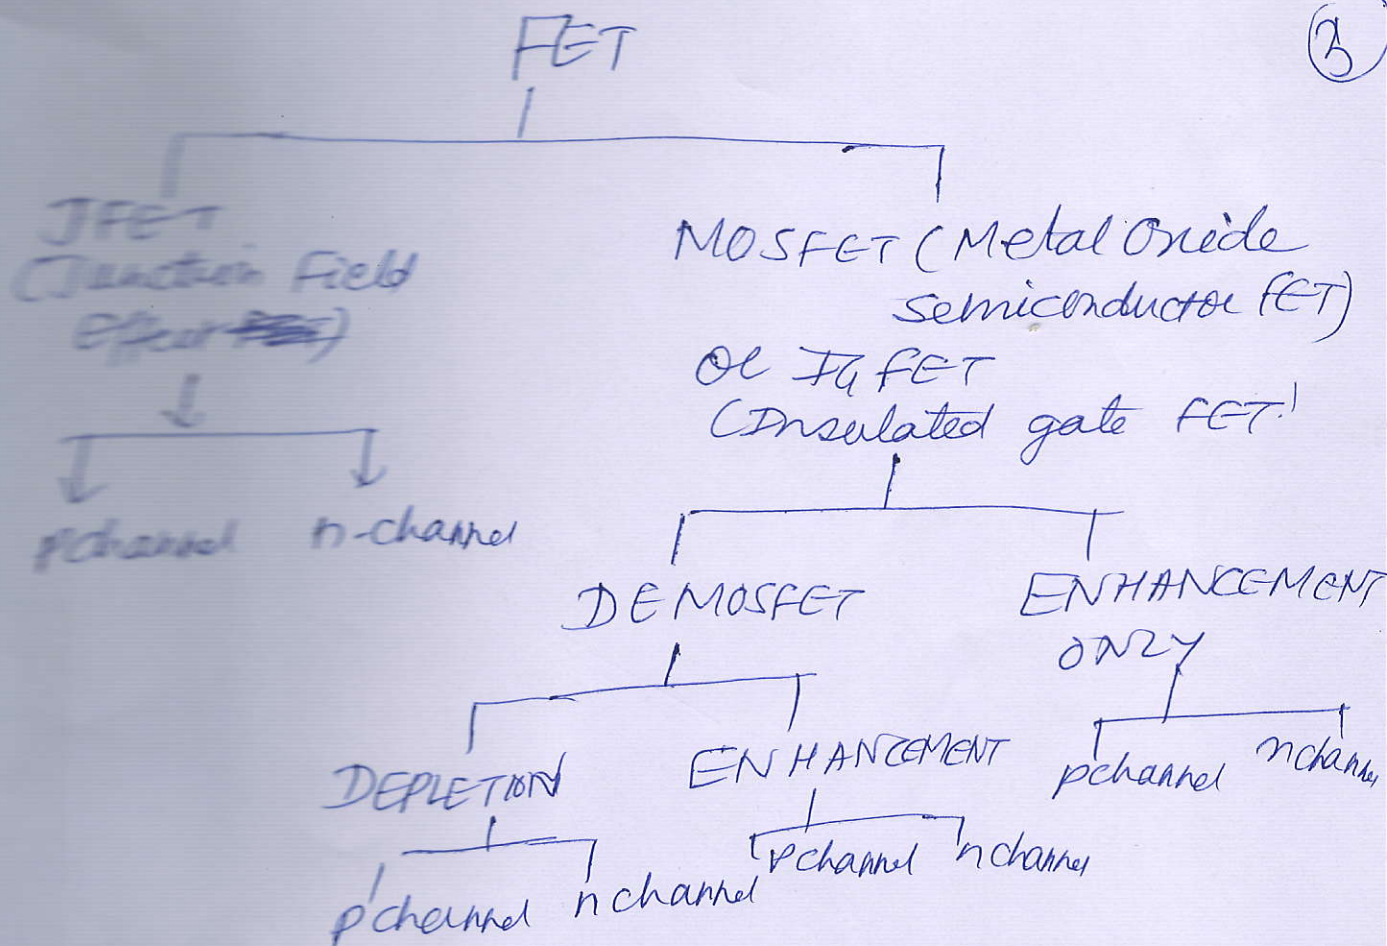 FET
3
JFET
(Junction Field
effect)
MOSFET (Metal Oxide
semiconductor FET)
or IGFET
(Insulated gate FET)
pchannel
n-channel
DEMOSFET
ENHANCEMENT
ONLY
DEPLETION
ENHANCEMENT
pchannel
nchannel
pchannel
nchannel
pchannel
nchannel